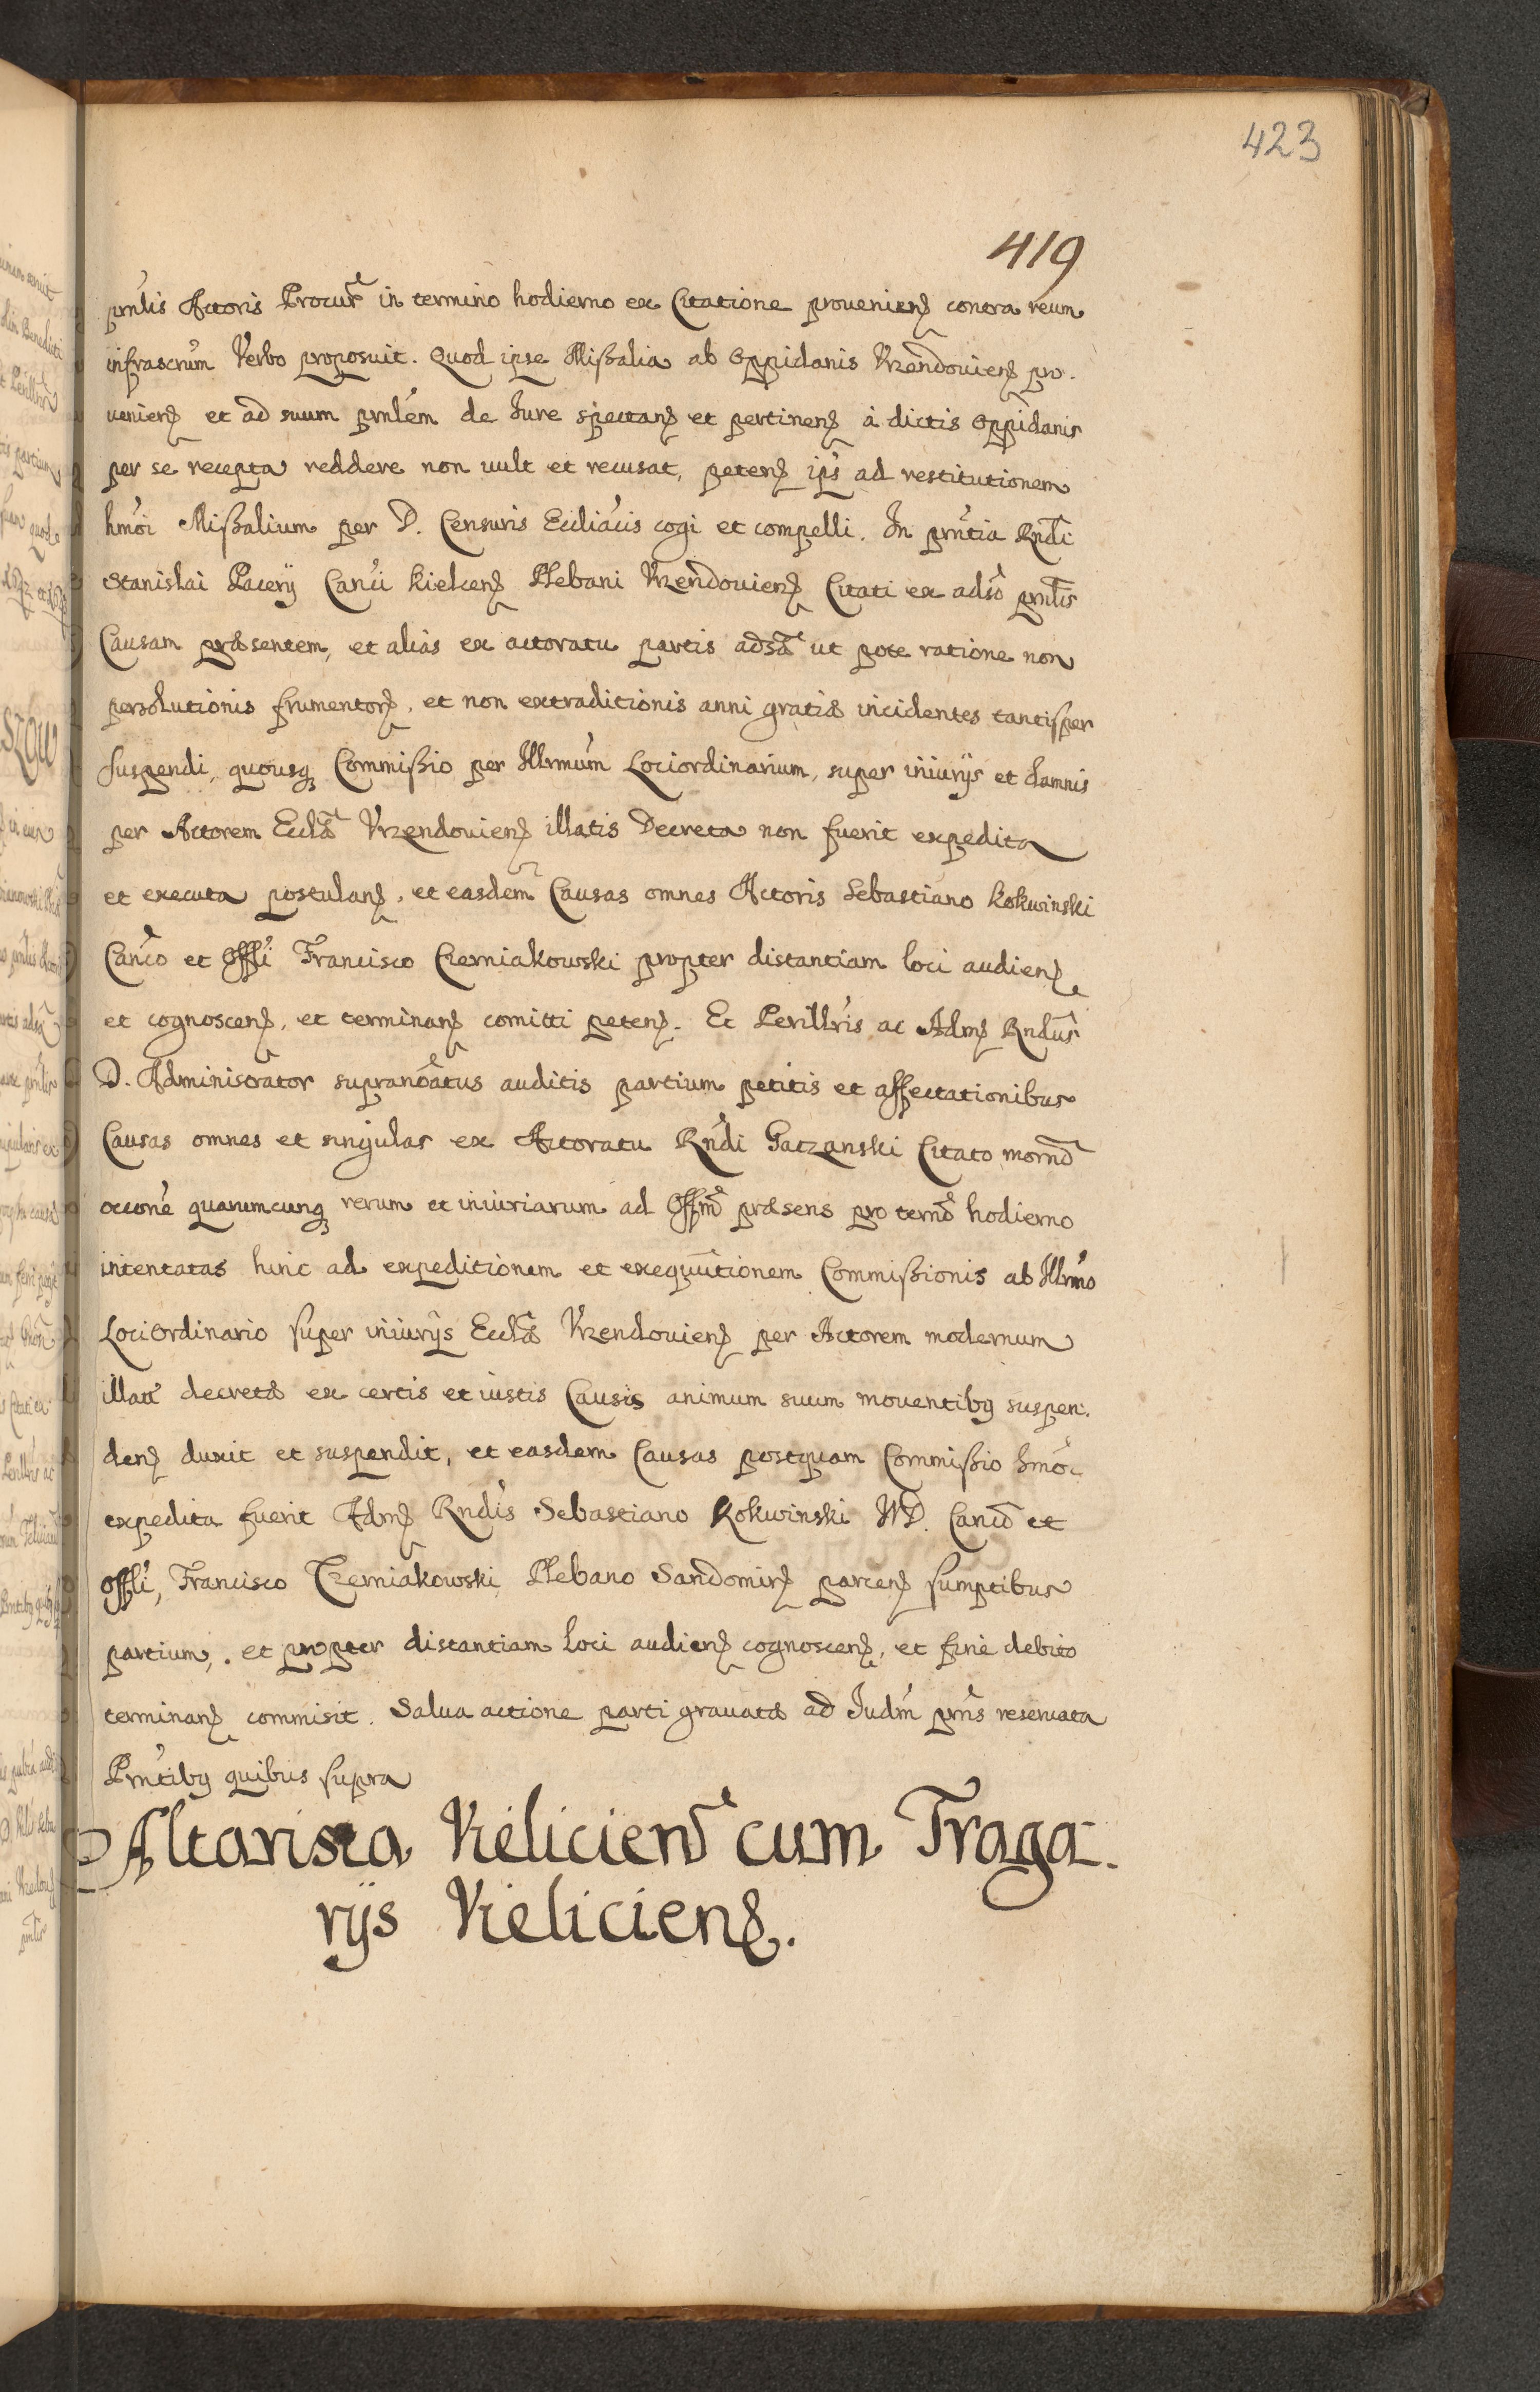 423
419
prnlis Actoris Procur in termino hodierno ex Citatione provenien contra reum
infrascrum Verbo proposuit. Quod ipse Missalia ab Oppidanis Vrzendovien pro.
venien et ad suum prnlem de Jure spectan et pertinen à dictis Oppidanis
per se recepta reddere non uult et recusat, peten ips ad restitutionem
hmoi Missalium per D. Censuris Eccliacis cogi et compelli. In prntia Rndi
Stanislai Pacerij Canci Kielcen Plebani Vrzendovien Citati ex adso prnlis
Causam præsentem, et alias ex actoratu partis adsa ut pote ratione non
persolutionis frumentor, et non extraditionis anni gratiæ incidentes tantisper
suspendi, quousq Commissio per Illrmum Lociordinarium, super iniurijs et damnis
per Actorem Ecclæ Vrzendouien illatis Decreta non fuerit expedita
et executa postulan, et easdem Causas omnes Actoris Sebastiano Kokwinski
Canco et Offli Francisco Czerniakowski propter distantiam loci audien
et cognoscen, et terminan comitti peten. Et Perillris ac Adm Rndus
D. Administrator supranoatus auditis partium petitis et affectationibus
Causas omnes et singulas ex Actoratu Rndi Gatzanski Citato mornd
occone quarumcunq rerum et iniuriarum ad Offm præsens pro termo hodierno
intentatas hinc ad expeditionem et exequutionem Commissionis ab Illrmo
Loci Ordinario super iniurijs Ecclæ Vrzendouien per Actorem modernum
illatt decretæ ex certis et iustis Causis animum suum mouentibq suspen.
den duxit et suspendit, et easdem Causas postquam Commissio hmoi
expedita fuerit Adm Rndis Sebastiano Kokwinski WD. Canco et
Offli, Francisco Czerniakowski Plebano Sandomir parcen sumptibus
partium, . et propter distantiam loci audien cognoscen, et fine debito
terminan commisit. Salua actione parti grauatæ ad Judm prns reseruata
Prntibq quibus supra
Altarista Kielicien cum Traga.
rijs Kielicien.